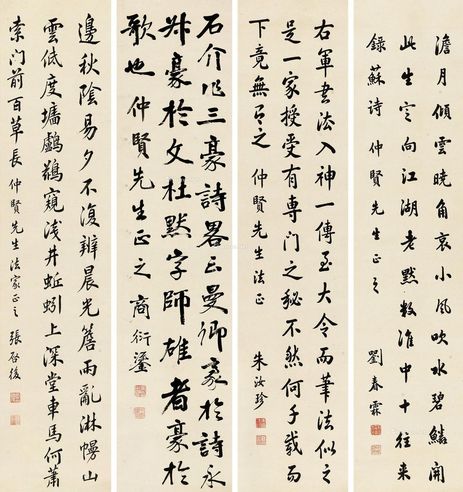 澹月傾雲曉角哀小風吹水碧鱗開
此生定向江湖老默數淮中十往來
錄蘇詩 仲賢先生正之 劉春霖
右軍書法入神一傳至大令而筆法似之
是一家授受有專門之秘不然何千載而
下竟無之 仲賢先生法正 朱汝珍
石介作三豪詩畧云曼卿豪於詩永
叔豪於文杜默字師雄者豪於
歌也 仲賢先生正之 商衍鎏
邊秋陰易夕不復辨晨光簷雨亂淋幔山
雲低度墻鸕鶿窺浅井蚯蚓上深堂車馬何蕭
索門前百草長 仲賢先生法家正之 張啓後